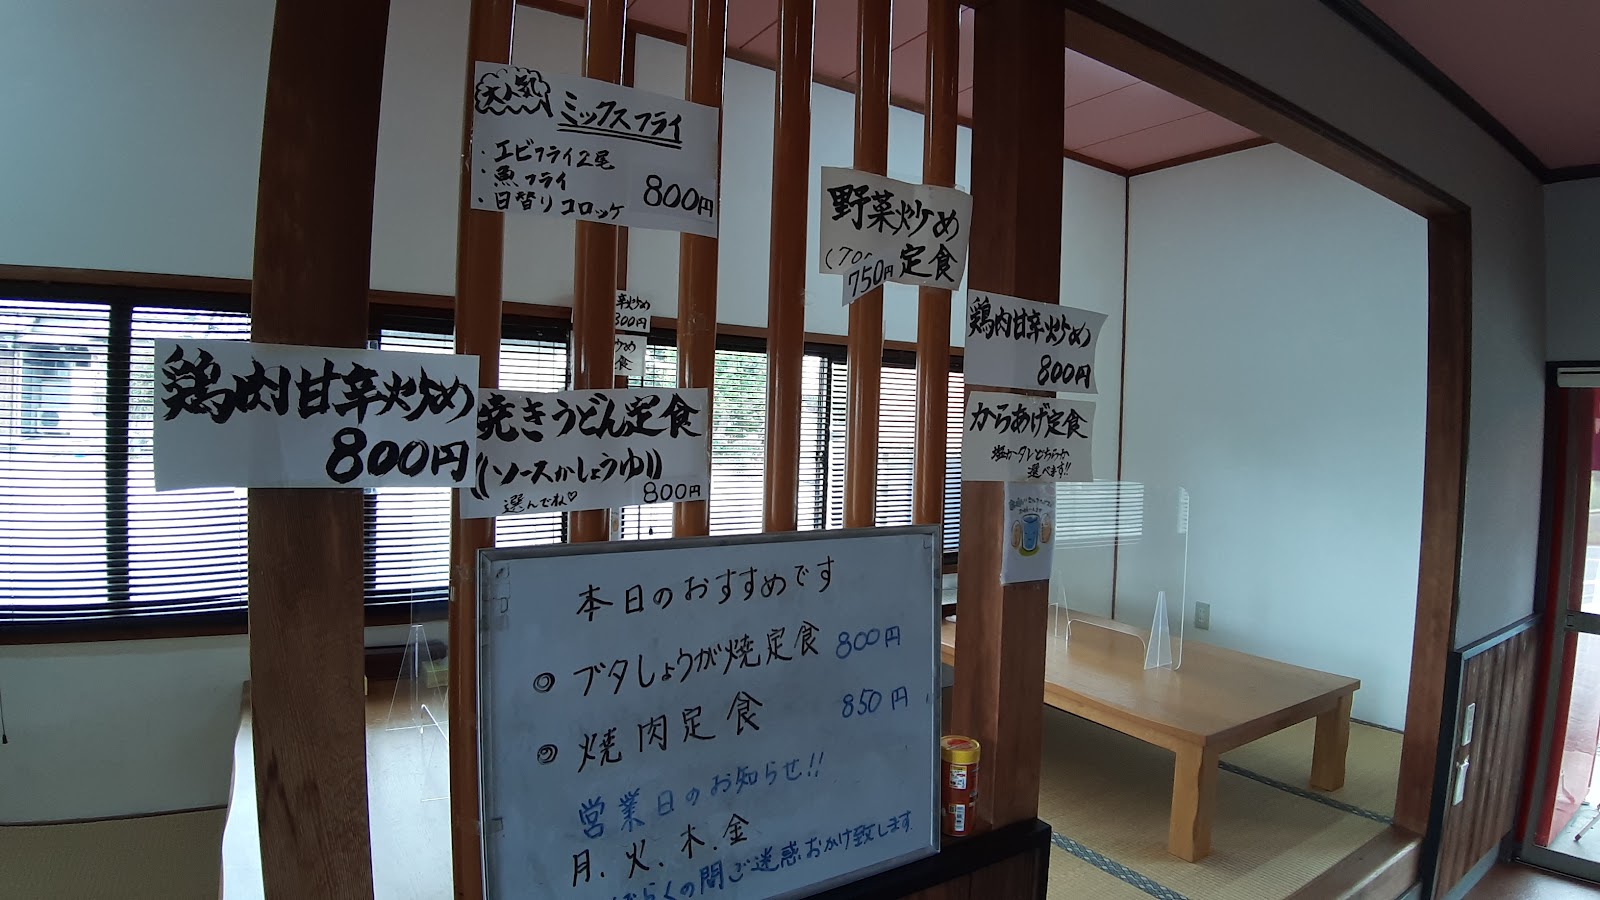 大人気
ミックスフライ
・エビフライ2尾
・魚フライ
・日替りコロッケ
800円
野菜炒め
定食
750円
辛炒め
800円
炒め
食
鶏肉甘辛炒め
800円
焼きうどん定食
((ソースかしょうゆ))
選んでね♡
800円
鶏肉甘辛炒め
800円
からあげ定食
塩かタレどちらか
選べます!!
本日のおすすめです
◎ ブタしょうが焼定食 800円
◎ 焼肉定食 850円
営業日のお知らせ!!
月.火.木.金
しばらくの間ご迷惑おかけ致します